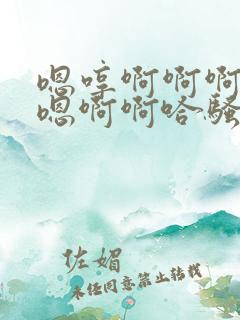 嗯哼啊啊啊
嗯啊啊哈骚
佐媚
未经同意禁止转载